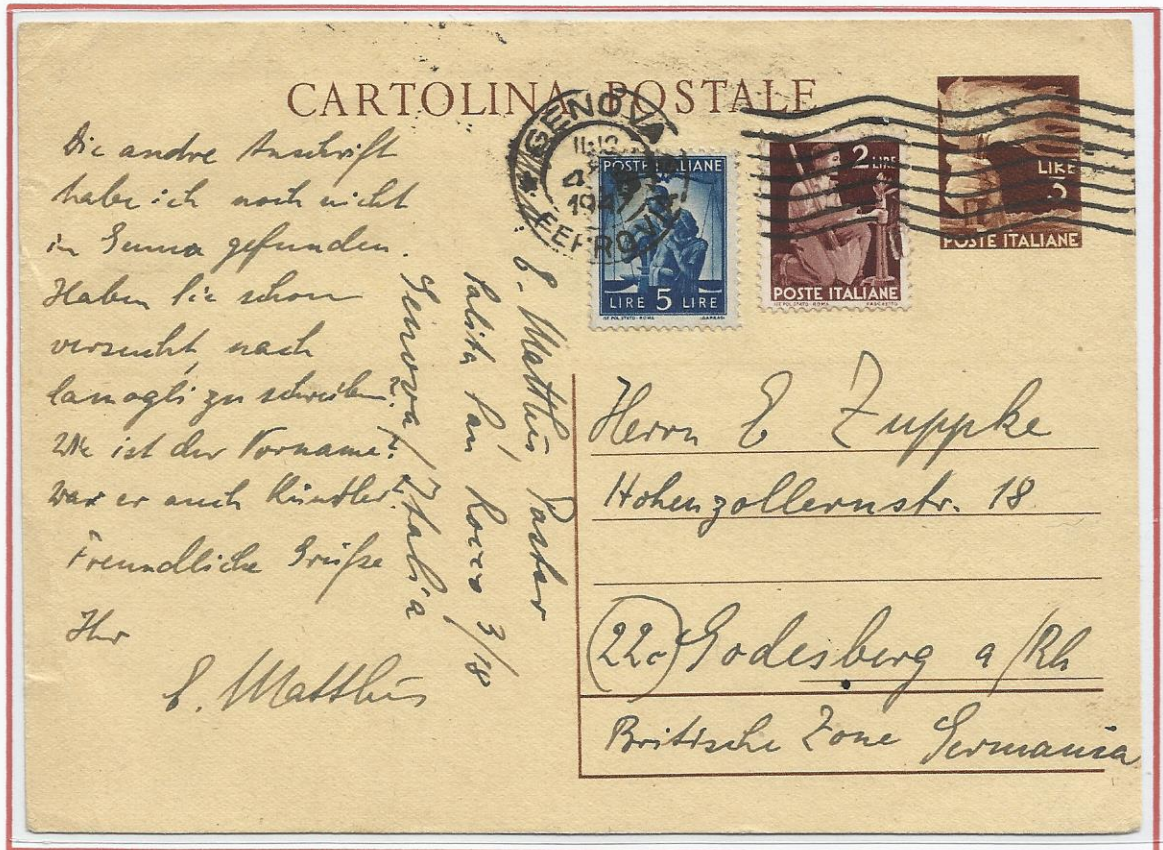 CARTOLINA POSTALE
GENOVA
4
1947
FERROVIA
POSTE ITALIANE
LIRE 5 LIRE
IST. POL. STATO - ROMA
2 LIRE
POSTE ITALIANE
IST. POL. STATO - ROMA
LIRE
3
POSTE ITALIANE
Die andre Anschrift
habe ich noch nicht
in Genua gefunden.
Haben Sie schon
versucht, nach
Camogli zu schreiben?
Wie ist der Vorname?
War er auch Künstler?
Freundliche Grüße
Ihr
E. Matthäs
E. Matthäs, Pastor
Salita San Rocco 3/18
Genova / Italia
Herrn E Zuppke
Hohenzollernstr. 18
(22c) Godesberg a/Rh
Britische Zone Germania